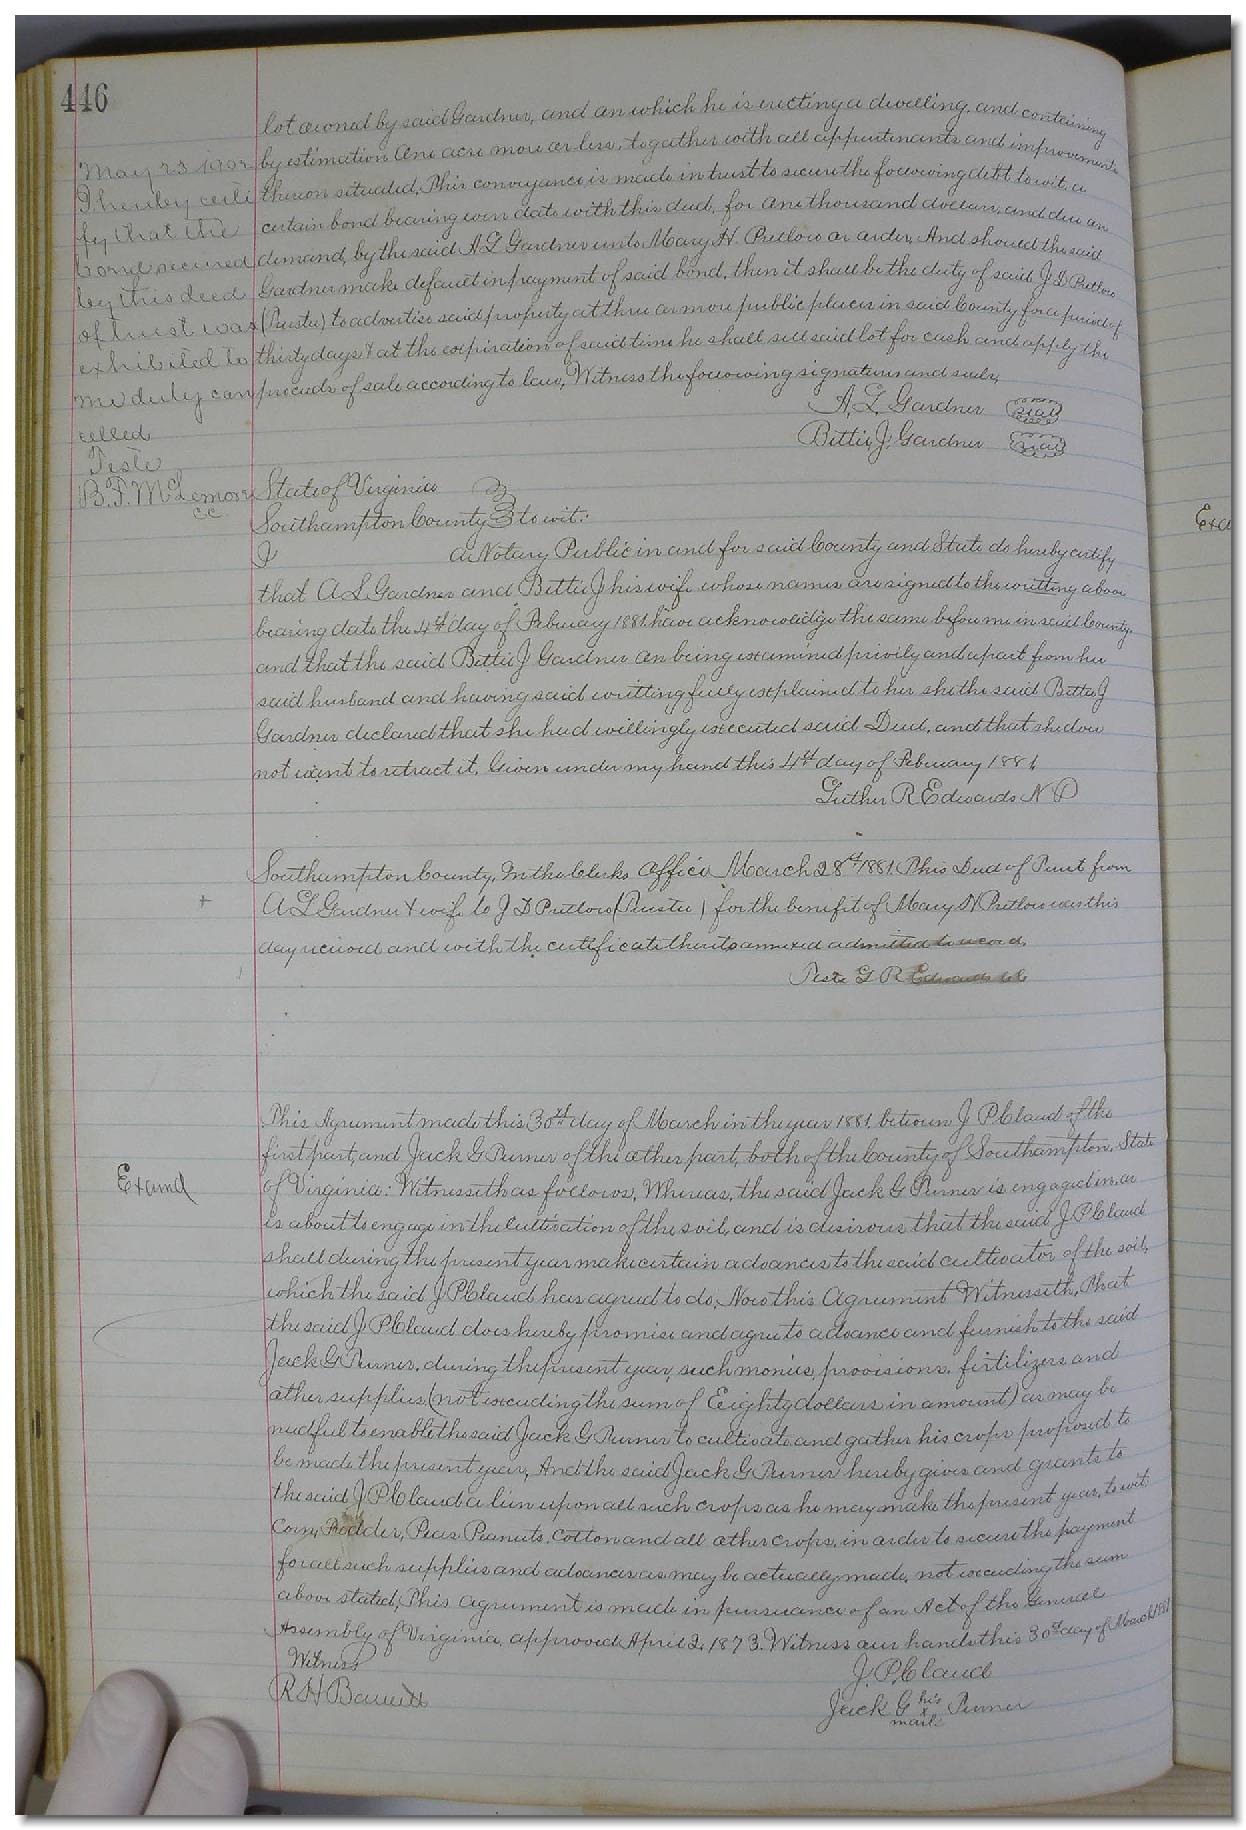 446
lot owned by said Gardner, and on which he is erecting a dwelling, and containing
by estimation One acre more or less, together with all appurtenants and improvements
thereon situated, This conveyance is made in trust to secure the following debt to wit, a
certain bond bearing even date with this deed, for One thousand dollars, and due on
demand, by the said A L Gardner unto Mary H. Pretlow or order, And should the said
Gardner make default in payment of said bond, then it shall be the duty of said J D Pretlow
(Trustee) to advertise said property at three or more public places in said County for a period of
thirty days & at the expiration of said time he shall sell said lot for cash and apply the
proceeds of sale according to law, Witness the following signatures and seals,
A, L, Gardner seal
Bettie J, Gardner seal
May 23 1902
I hereby certi
fy that the
bond secured
by this deed
of trust was
exhibited to
me duly can
celled
Teste
B. F. McLemore
cc.
State of Virginia
Southampton County to wit:
I a Notary Public in and for said County and State do hereby certify
that A L Gardner and Bettie J his wife whose names are signed to the writting above
bearing date the 4th day of February 1881, have acknowledge the same before me in said County,
and that the said Bettie J Gardner on being examined privily and apart from her
said husband and having said writting fully explained to her she the said Bettie J
Gardner declared that she had willingly executed said Deed, and that she does
not want to retract it, Given under my hand this 4th day of February 1881,
Luther R Edwards N P
Southampton County, In the Clerks Office March 28th 1881, This Deed of Trust from
A L Gardner & wife to J D Pretlow (Trustee) for the benefit of Mary H Pretlow was this
day received and with the certificate thereto annexed admitted to record,
Teste G R Edwards
This Agreement made this 30th day of March in the year 1881, between J P Claud of the
first part, and Jack G Turner of the other part, both of the County of Southampton, State
Examd
of Virginia: Witnesseth as follows, Whereas, the said Jack G Turner is engaged in, or
is about to engage in the cultivation of the soil, and is desirous that the said J P Claud
shall during the present year make certain advances to the said cultivator of the soil,
which the said J P Claud has agreed to do; Now this Agreement Witnesseth, That
the said J P Claud does hereby promise and agree to advance and furnish to the said
Jack G Turner, during the present year, such monies, provisions, fertilizers and
other supplies, (not exceeding the sum of Eighty dollars in amount) as may be
needful to enable the said Jack G Turner to cultivate and gather his crops proposed to
be made the present year, And the said Jack G Turner hereby gives and grants to
the said J P Claud a lien upon all such crops as he may make the present year, to wit
Corn, Fodder, Peas Peanuts, Cotton and all other crops, in order to secure the payment
for all such supplies and advances as may be actually made, not exceeding the sum
above stated; This agreement is made in pursuance of an Act of the General
Assembly of Virginia, approved April 2, 1873. Witness our hands this 30th day of March 1881
Witness J. P. Claud
R H Barrett Jack G his x mark Turner
Exa